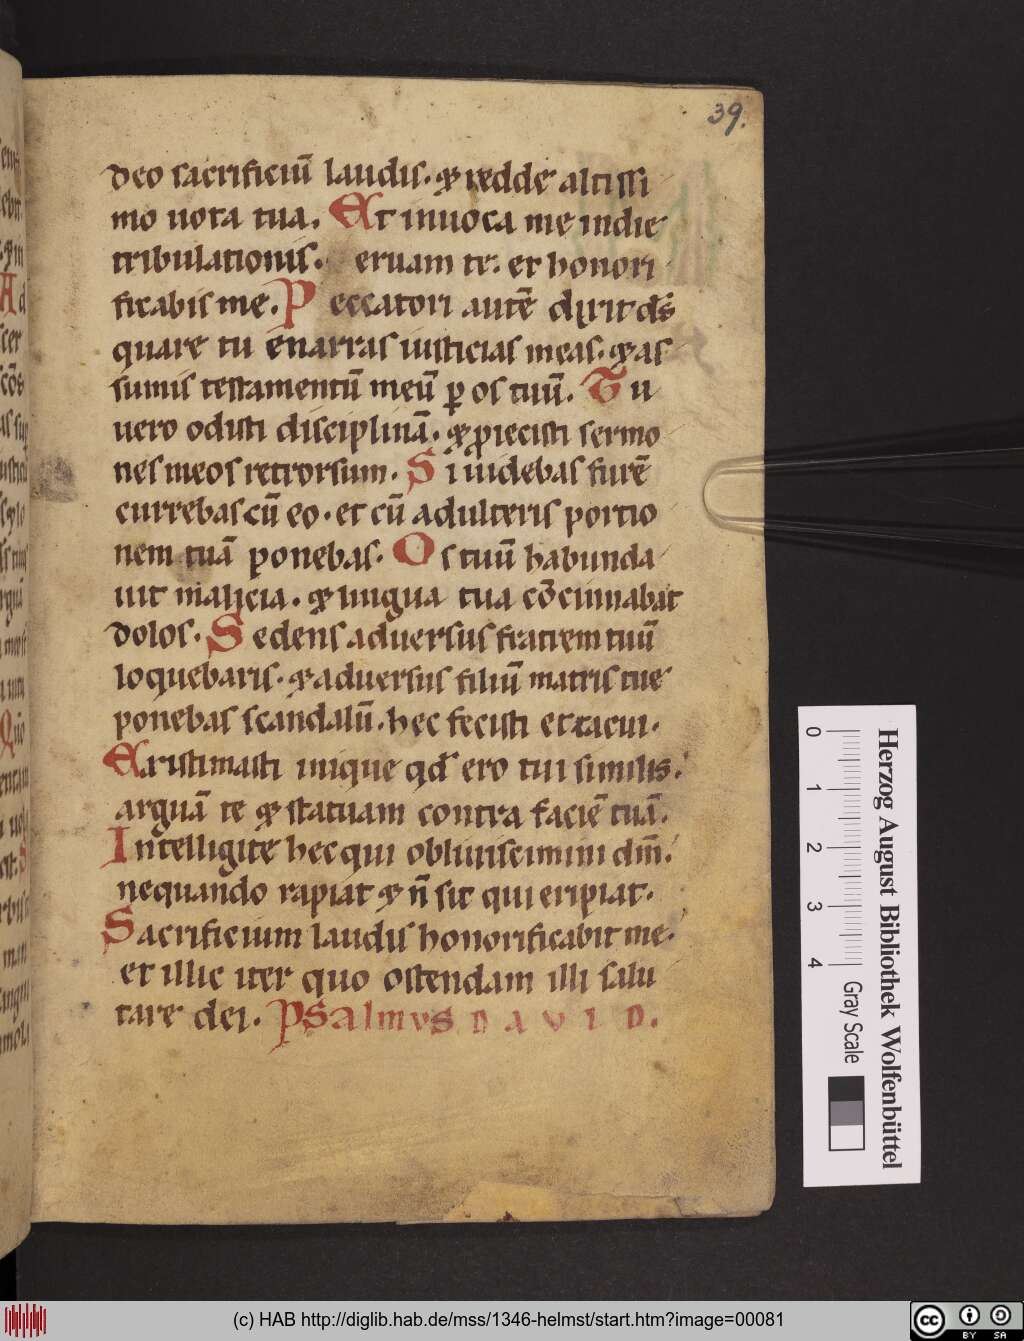 39.
deo sacrificiū laudis. & redde altissi
mo uota tua. Et inuoca me in die
tribulationis. eruam te. et honori
ficabis me. Peccatori autē dixit ds̄
quare tu enarras iusticias meas. & as
sumis testamentū meū ꝑ os tuū. Tu
uero odisti disciplinā. & proiecisti sermo
nes meos retrorsum. Si uidebas furē
currebas cū eo. et cū adulteris portio
nem tuā ponebas. Os tuū habunda
uit malicia. & lingua tua cōcinnabat
dolos. Sedens aduersus fratrem tuū
loquebaris. & aduersus filiū matris tue
ponebas scandalū. hec fecisti et tacui.
Existimasti inique qd̄ ero tui similis.
arguā te & statuam contra faciē tuā.
Intelligite hec qui obliuiscimini dm̄.
nequando rapiat & n̄ sit qui eripiat.
Sacrificium laudis honorificabit me.
et illic iter quo ostendam illi salu
tare dei. PSalmvs DAVID.
Herzog August Bibliothek Wolfenbüttel
0 1 2 3 4 Gray Scale
(c) HAB http://diglib.hab.de/mss/1346-helmst/start.htm?image=00081
cc BY SA